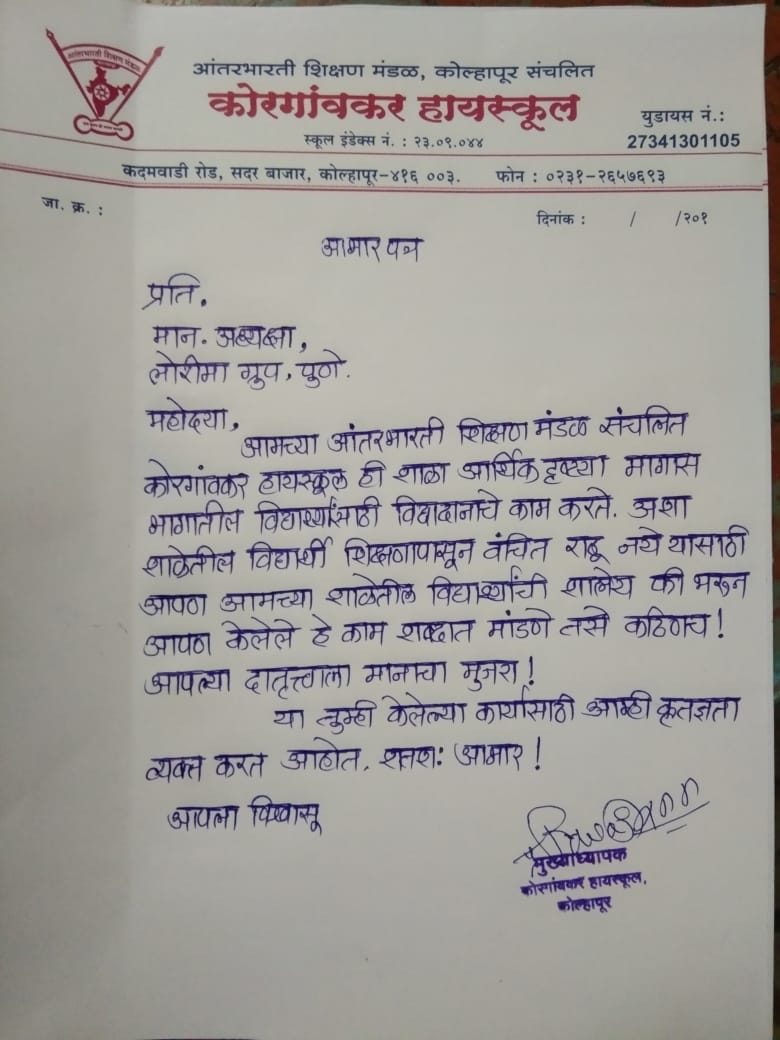 आंतरभारती शिक्षण मंडळ
आंतरभारती शिक्षण मंडळ, कोल्हापूर संचलित
कोरगांवकर हायस्कूल
स्कूल इंडेक्स नं. : २३.०९.०४४
युडायस नं.:
27341301105
कदमवाडी रोड, सदर बाजार, कोल्हापूर-४१६ ००३. फोन : ०२३१-२६५७६९३
जा. क्र. :
दिनांक : / /२०१
आभार पत्र
प्रति.
मान. अध्यक्षा,
लोरीमा ग्रुप, पुणे.
महोदया,
आमच्या आंतरभारती शिक्षण मंडळ संचलित
कोरगांवकर हायस्कूल ही शाळा आर्थिक दृष्ट्या मागास
भागातील विद्यार्थ्यांसाठी विद्यादानाचे काम करते. अशा
शाळेतील विद्यार्थी शिक्षणापासून वंचित राहू नये यासाठी
आपण आमच्या शाळेतील विद्यार्थ्यांची शालेय फी भरून
आपण केलेले हे काम शब्दात मांडणे तसे कठिणच!
आपल्या दातृत्त्वाला मानाचा मुजरा!
या तुम्ही केलेल्या कार्यासाठी आम्ही कृतज्ञता
व्यक्त करत आहोत. शतशः आभार!
आपला विश्वासू
मुख्याध्यापक
कोरगांवकर हायस्कूल,
कोल्हापूर